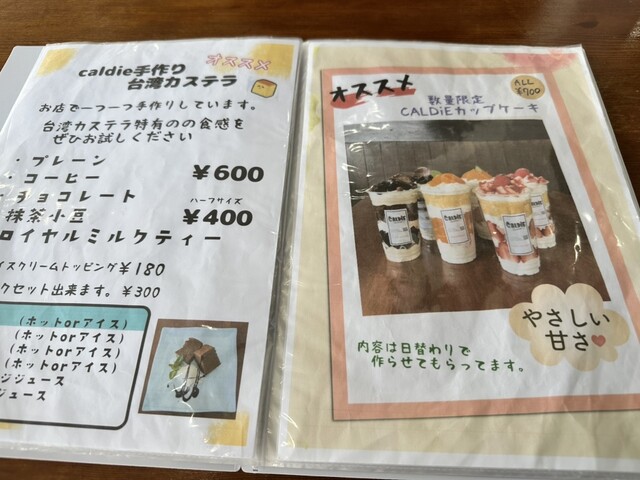 オススメ
caldie手作り
台湾カステラ
お店で一つ一つ手作りしています。
台湾カステラ特有のの食感を
ぜひお試しください
・プレーン
・コーヒー
チョコレート
抹茶小豆
ロイヤルミルクティー
¥600
ハーフサイズ
¥400
イスクリームトッピング¥180
クセット出来ます。¥300
(ホットorアイス)
(ホットorアイス)
(ホットorアイス)
(ホットorアイス)
ジジュース
ジュース
オススメ
ALL
¥700
数量限定
CALDiEカップケーキ
やさしい
甘さ
内容は日替わりで
作らせてもらってます。